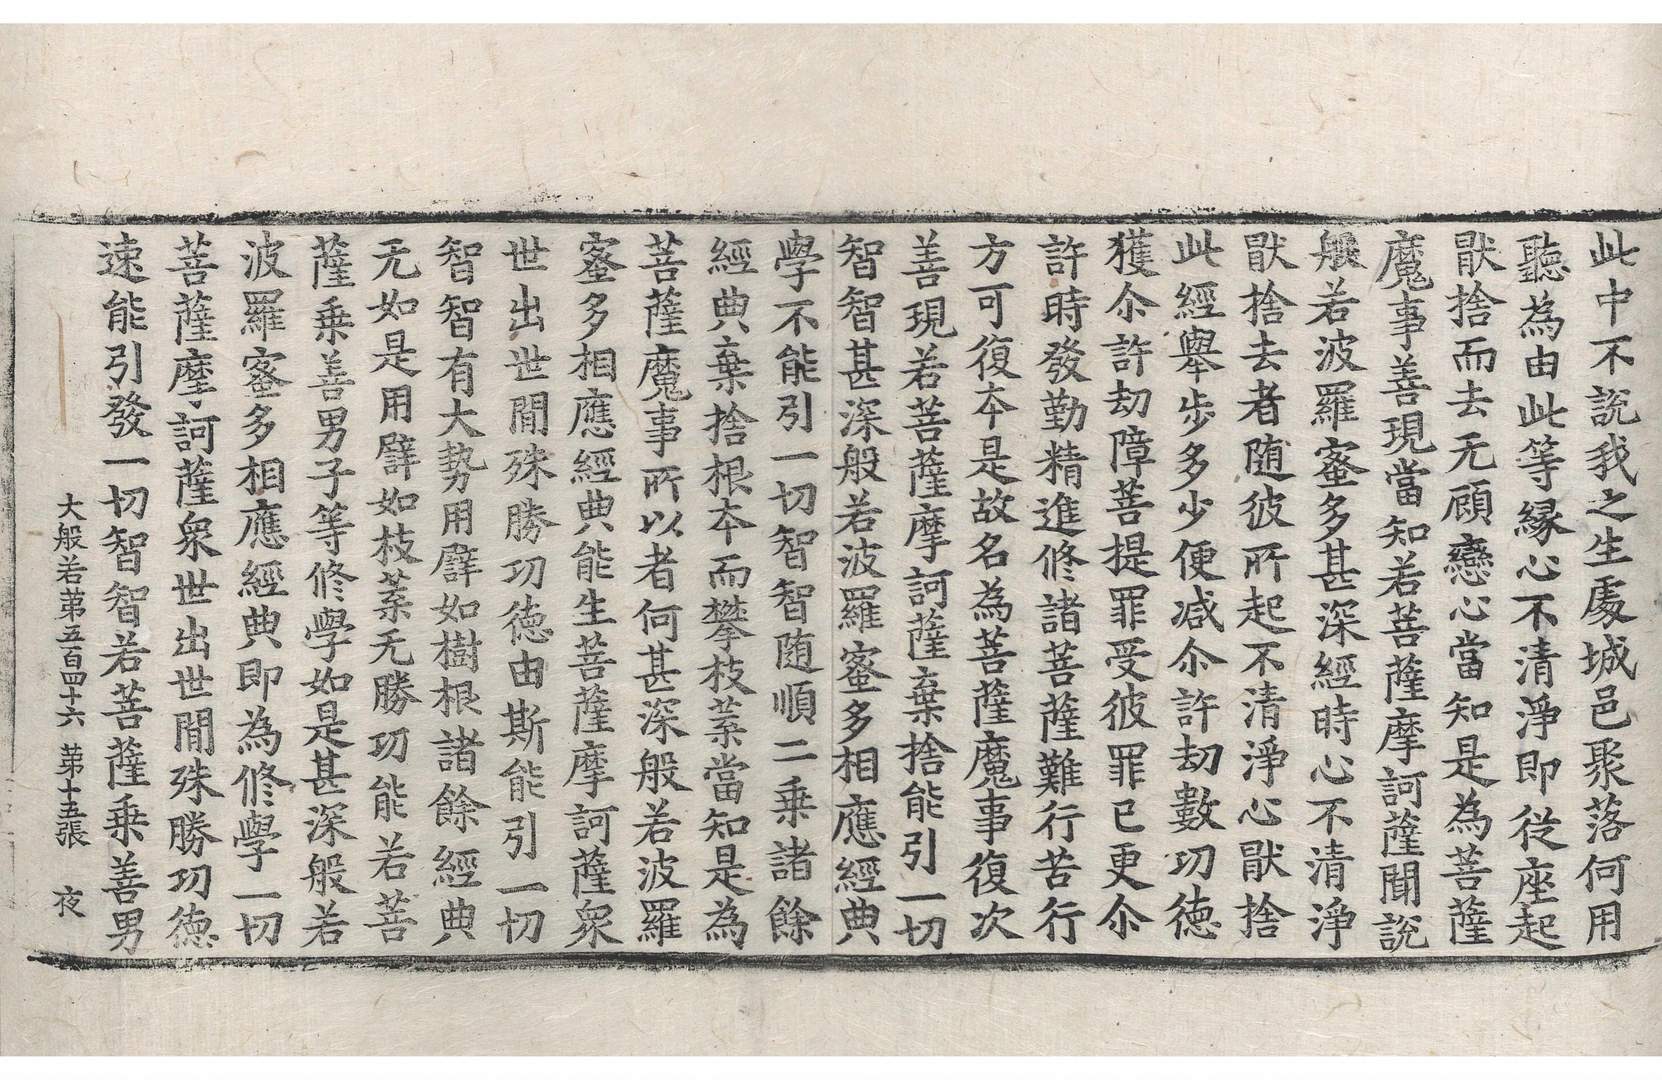 此中不說我之生處城邑聚落何用
聽為由此等緣心不清淨即從座起
猒捨而去无顧戀心當知是為菩薩
魔事善現當知若菩薩摩訶薩聞說
般若波羅蜜多甚深經時心不清淨
猒捨去者随彼所起不清淨心猒捨
此經舉步多少便減尒許劫數功德
獲尒許劫障菩提罪受彼罪已更尒
許時發勤精進修諸菩薩難行苦行
方可復本是故名為菩薩魔事復次
善現若菩薩摩訶薩棄捨能引一切
智智甚深般若波羅蜜多相應經典
學不能引一切智智随順二乘諸餘
經典棄捨根本而攀枝葉當知是為
菩薩魔事所以者何甚深般若波羅
蜜多相應經典能生菩薩摩訶薩衆
世出世間殊勝功德由斯能引一切
智智有大勢用譬如樹根諸餘經典
无如是用譬如枝葉无勝功能若菩
薩乘善男子等修學如是甚深般若
波羅蜜多相應經典即為修學一切
菩薩摩訶薩衆世出世間殊勝功德
速能引發一切智智若菩薩乘善男
大般若第五百四十六 第十五張 夜